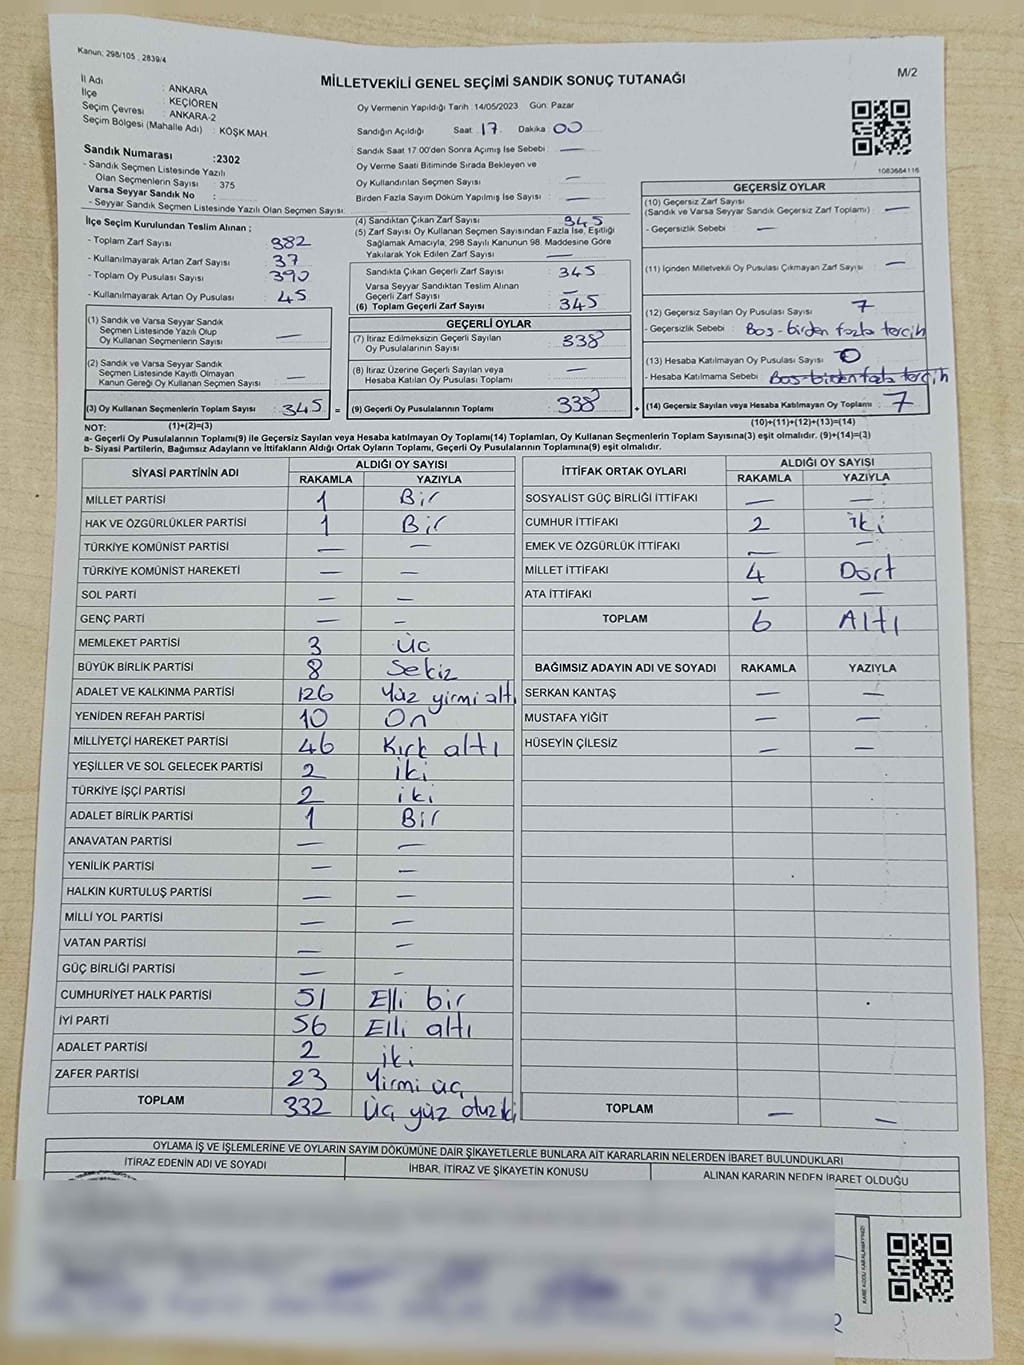 Kanun; 298/105 , 2839/4
MİLLETVEKİLİ GENEL SEÇİMİ SANDIK SONUÇ TUTANAĞI
M/2
İl Adı : ANKARA
İlçe : KEÇİÖREN
Seçim Çevresi : ANKARA-2
Seçim Bölgesi (Mahalle Adı) : KÖŞK MAH.
Sandık Numarası :2302
- Sandık Seçmen Listesinde Yazılı
Olan Seçmenlerin Sayısı : 375
Varsa Seyyar Sandık No :
- Seyyar Sandık Seçmen Listesinde Yazılı Olan Seçmen Sayısı:
Oy Vermenin Yapıldığı Tarih :14/05/2023 Gün: Pazar
Sandığın Açıldığı Saat :17 Dakika :00
Sandık Saat 17:00'den Sonra Açılmış İse Sebebi : —
Oy Verme Saati Bitiminde Sırada Bekleyen ve
Oy Kullandırılan Seçmen Sayısı : —
Birden Fazla Sayım Döküm Yapılmış İse Sayısı : —
1083684116
İlçe Seçim Kurulundan Teslim Alınan ;
- Toplam Zarf Sayısı : 382
- Kullanılmayarak Artan Zarf Sayısı : 37
- Toplam Oy Pusulası Sayısı : 390
- Kullanılmayarak Artan Oy Pusulası : 45
(1) Sandık ve Varsa Seyyar Sandık
Seçmen Listesinde Yazılı Olup
Oy Kullanan Seçmenlerin Sayısı : —
(2) Sandık ve Varsa Seyyar Sandık
Seçmen Listesinde Kayıtlı Olmayan
Kanun Gereği Oy Kullanan Seçmen Sayısı : —
(3) Oy Kullanan Seçmenlerin Toplam Sayısı : 345 =
(4) Sandıktan Çıkan Zarf Sayısı : 345
(5) Zarf Sayısı Oy Kullanan Seçmen Sayısından Fazla İse, Eşitliği
Sağlamak Amacıyla, 298 Sayılı Kanunun 98. Maddesine Göre
Yakılarak Yok Edilen Zarf Sayısı : —
Sandıkta Çıkan Geçerli Zarf Sayısı : 345
Varsa Seyyar Sandıktan Teslim Alınan
Geçerli Zarf Sayısı : —
(6) Toplam Geçerli Zarf Sayısı : 345
GEÇERLİ OYLAR
(7) İtiraz Edilmeksizin Geçerli Sayılan
Oy Pusulalarının Sayısı : 338
(8) İtiraz Üzerine Geçerli Sayılan veya
Hesaba Katılan Oy Pusulası Toplamı : —
(9) Geçerli Oy Pusulalarının Toplamı : 338 +
GEÇERSİZ OYLAR
(10) Geçersiz Zarf Sayısı
(Sandık ve Varsa Seyyar Sandık Geçersiz Zarf Toplamı) : —
- Geçersizlik Sebebi : —
(11) İçinden Milletvekili Oy Pusulası Çıkmayan Zarf Sayısı : —
(12) Geçersiz Sayılan Oy Pusulası Sayısı : 7
- Geçersizlik Sebebi : Boş-birden fazla tercih
(13) Hesaba Katılmayan Oy Pusulası Sayısı : 0
- Hesaba Katılmama Sebebi : Boş-birden fazla tercih
(14) Geçersiz Sayılan veya Hesaba Katılmayan Oy Toplamı : 7
NOT: (1)+(2)=(3)
(10)+(11)+(12)+(13)=(14)
a- Geçerli Oy Pusulalarının Toplamı(9) ile Geçersiz Sayılan veya Hesaba katılmayan Oy Toplamı(14) Toplamları, Oy Kullanan Seçmenlerin Toplam Sayısına(3) eşit olmalıdır. (9)+(14)=(3)
b- Siyasi Partilerin, Bağımsız Adayların ve İttifakların Aldığı Ortak Oyların Toplamı, Geçerli Oy Pusulalarının Toplamına(9) eşit olmalıdır.
SİYASİ PARTİNİN ADI ALDIĞI OY SAYISI
RAKAMLA YAZIYLA
MİLLET PARTİSİ 1 Bir
HAK VE ÖZGÜRLÜKLER PARTİSİ 1 Bir
TÜRKİYE KOMÜNİST PARTİSİ — —
TÜRKİYE KOMÜNİST HAREKETİ — —
SOL PARTİ — —
GENÇ PARTİ — —
MEMLEKET PARTİSİ 3 üç
BÜYÜK BİRLİK PARTİSİ 8 Sekiz
ADALET VE KALKINMA PARTİSİ 126 Yüz yirmi altı
YENİDEN REFAH PARTİSİ 10 On
MİLLİYETÇİ HAREKET PARTİSİ 46 Kırk altı
YEŞİLLER VE SOL GELECEK PARTİSİ 2 iki
TÜRKİYE İŞÇİ PARTİSİ 2 iki
ADALET BİRLİK PARTİSİ 1 Bir
ANAVATAN PARTİSİ — —
YENİLİK PARTİSİ — —
HALKIN KURTULUŞ PARTİSİ — —
MİLLİ YOL PARTİSİ — —
VATAN PARTİSİ — —
GÜÇ BİRLİĞİ PARTİSİ — —
CUMHURİYET HALK PARTİSİ 51 Elli bir
İYİ PARTİ 56 Elli altı
ADALET PARTİSİ 2 iki
ZAFER PARTİSİ 23 Yirmi üç
TOPLAM 332 Üç yüz otuz iki
İTTİFAK ORTAK OYLARI ALDIĞI OY SAYIŞI
RAKAMLA YAZIYLA
SOSYALİST GÜÇ BİRLİĞİ İTTİFAKI — —
CUMHUR İTTİFAKI 2 iki
EMEK VE ÖZGÜRLÜK İTTİFAKI — —
MİLLET İTTİFAKI 4 Dört
ATA İTTİFAKI — —
TOPLAM 6 Altı
BAĞIMSIZ ADAYIN ADI VE SOYADI RAKAMLA YAZIYLA
SERKAN KANTAŞ — —
MUSTAFA YİĞİT — —
HÜSEYİN ÇİLESİZ — —
TOPLAM — —
OYLAMA İŞ VE İŞLEMLERİNE VE OYLARIN SAYIM DÖKÜMÜNE DAİR ŞİKAYETLERLE BUNLARA AİT KARARLARIN NELERDEN İBARET BULUNDUKLARI
İTİRAZ EDENİN ADI VE SOYADI İHBAR, İTİRAZ VE ŞİKAYETİN KONUSU ALINAN KARARIN NEDEN İBARET OLDUĞU
KARE KODU KARALAMAYINIZ!